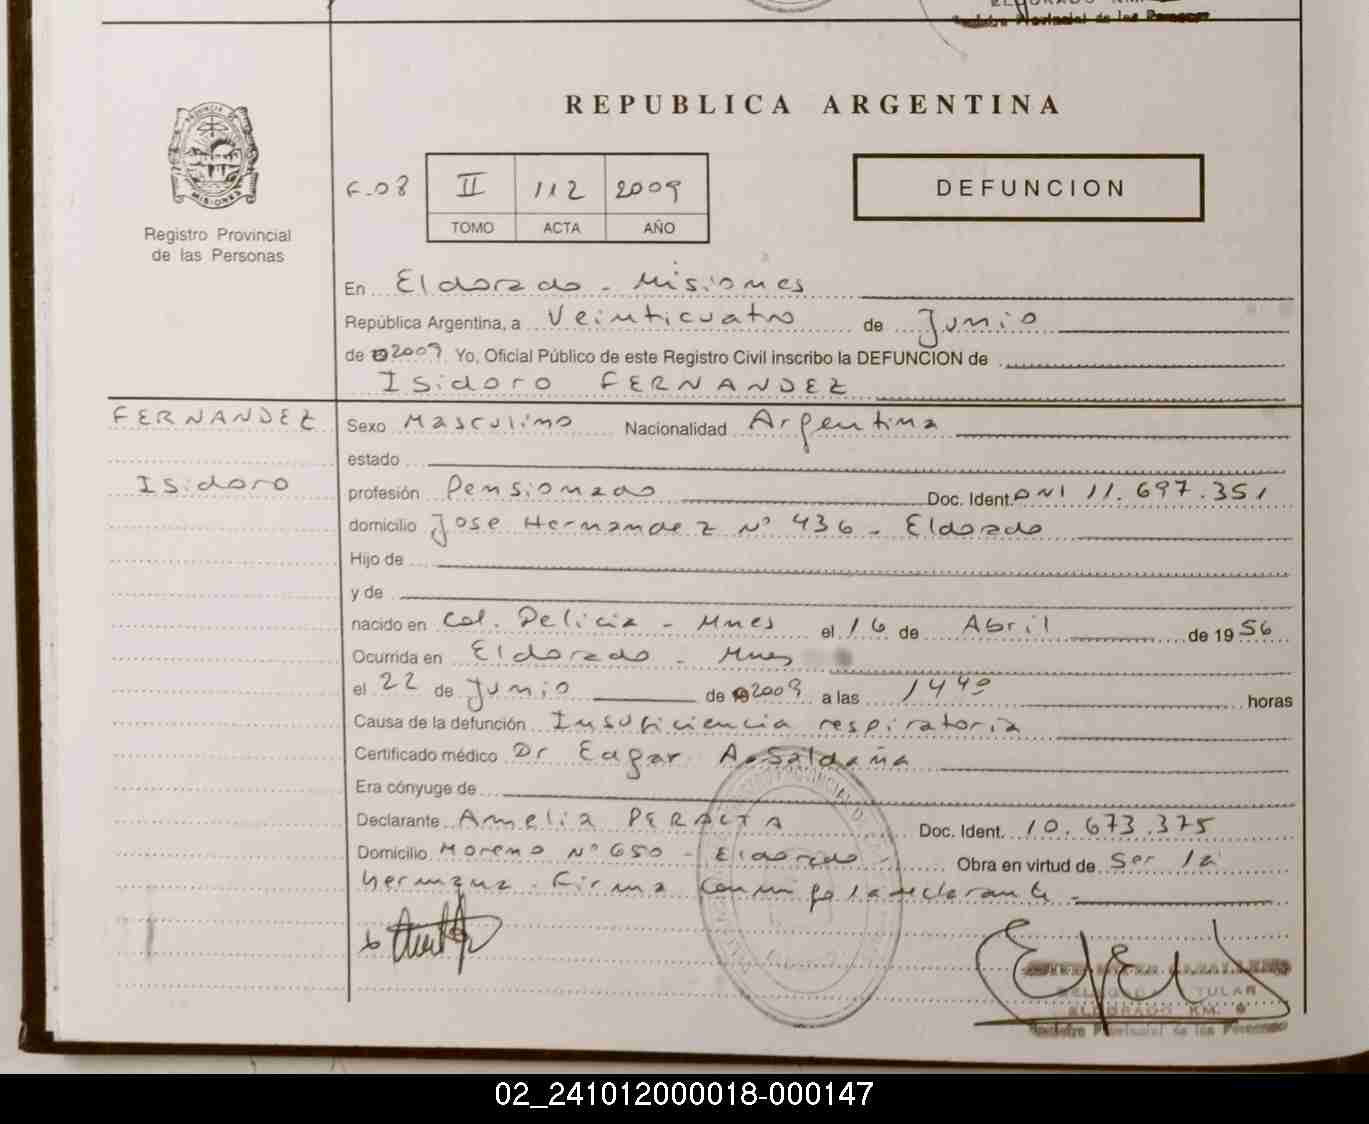 ELDORADO KM.
Registro Provincial de las Personas
REPUBLICA ARGENTINA
PROVINCIA DE
MISIONES
Registro Provincial
de las Personas
F-08 II 112 2009
TOMO ACTA AÑO
DEFUNCION
En Eldorado - Misiones
República Argentina, a Veinticuatro de Junio
de 2009 Yo, Oficial Público de este Registro Civil inscribo la DEFUNCION de
Isidoro FERNANDEZ
FERNANDEZ
Isidoro
Sexo Masculino Nacionalidad Argentina
estado
profesión Pensionado Doc. Ident. DNI 11.697.351
domicilio Jose Hernandez Nº 436 - Eldorado
Hijo de
y de
nacido en Col. Delicia - Mnes el 16 de Abril de 1956
Ocurrida en Eldorado - Mnes
el 22 de Junio de 2009 a las 14 40 horas
Causa de la defunción Insuficiencia respiratoria
Certificado médico Dr Edgar A. Saldaña
Era cónyuge de
Declarante Amelia PERALTA Doc. Ident. 10.673.375
Domicilio Moreno Nº 650 - Eldorado - Obra en virtud de Ser la
hermana - Firma conmigo la declarante
TULAR
ELDORADO KM. 9
Registro Provincial de las Personas
02_241012000018-000147